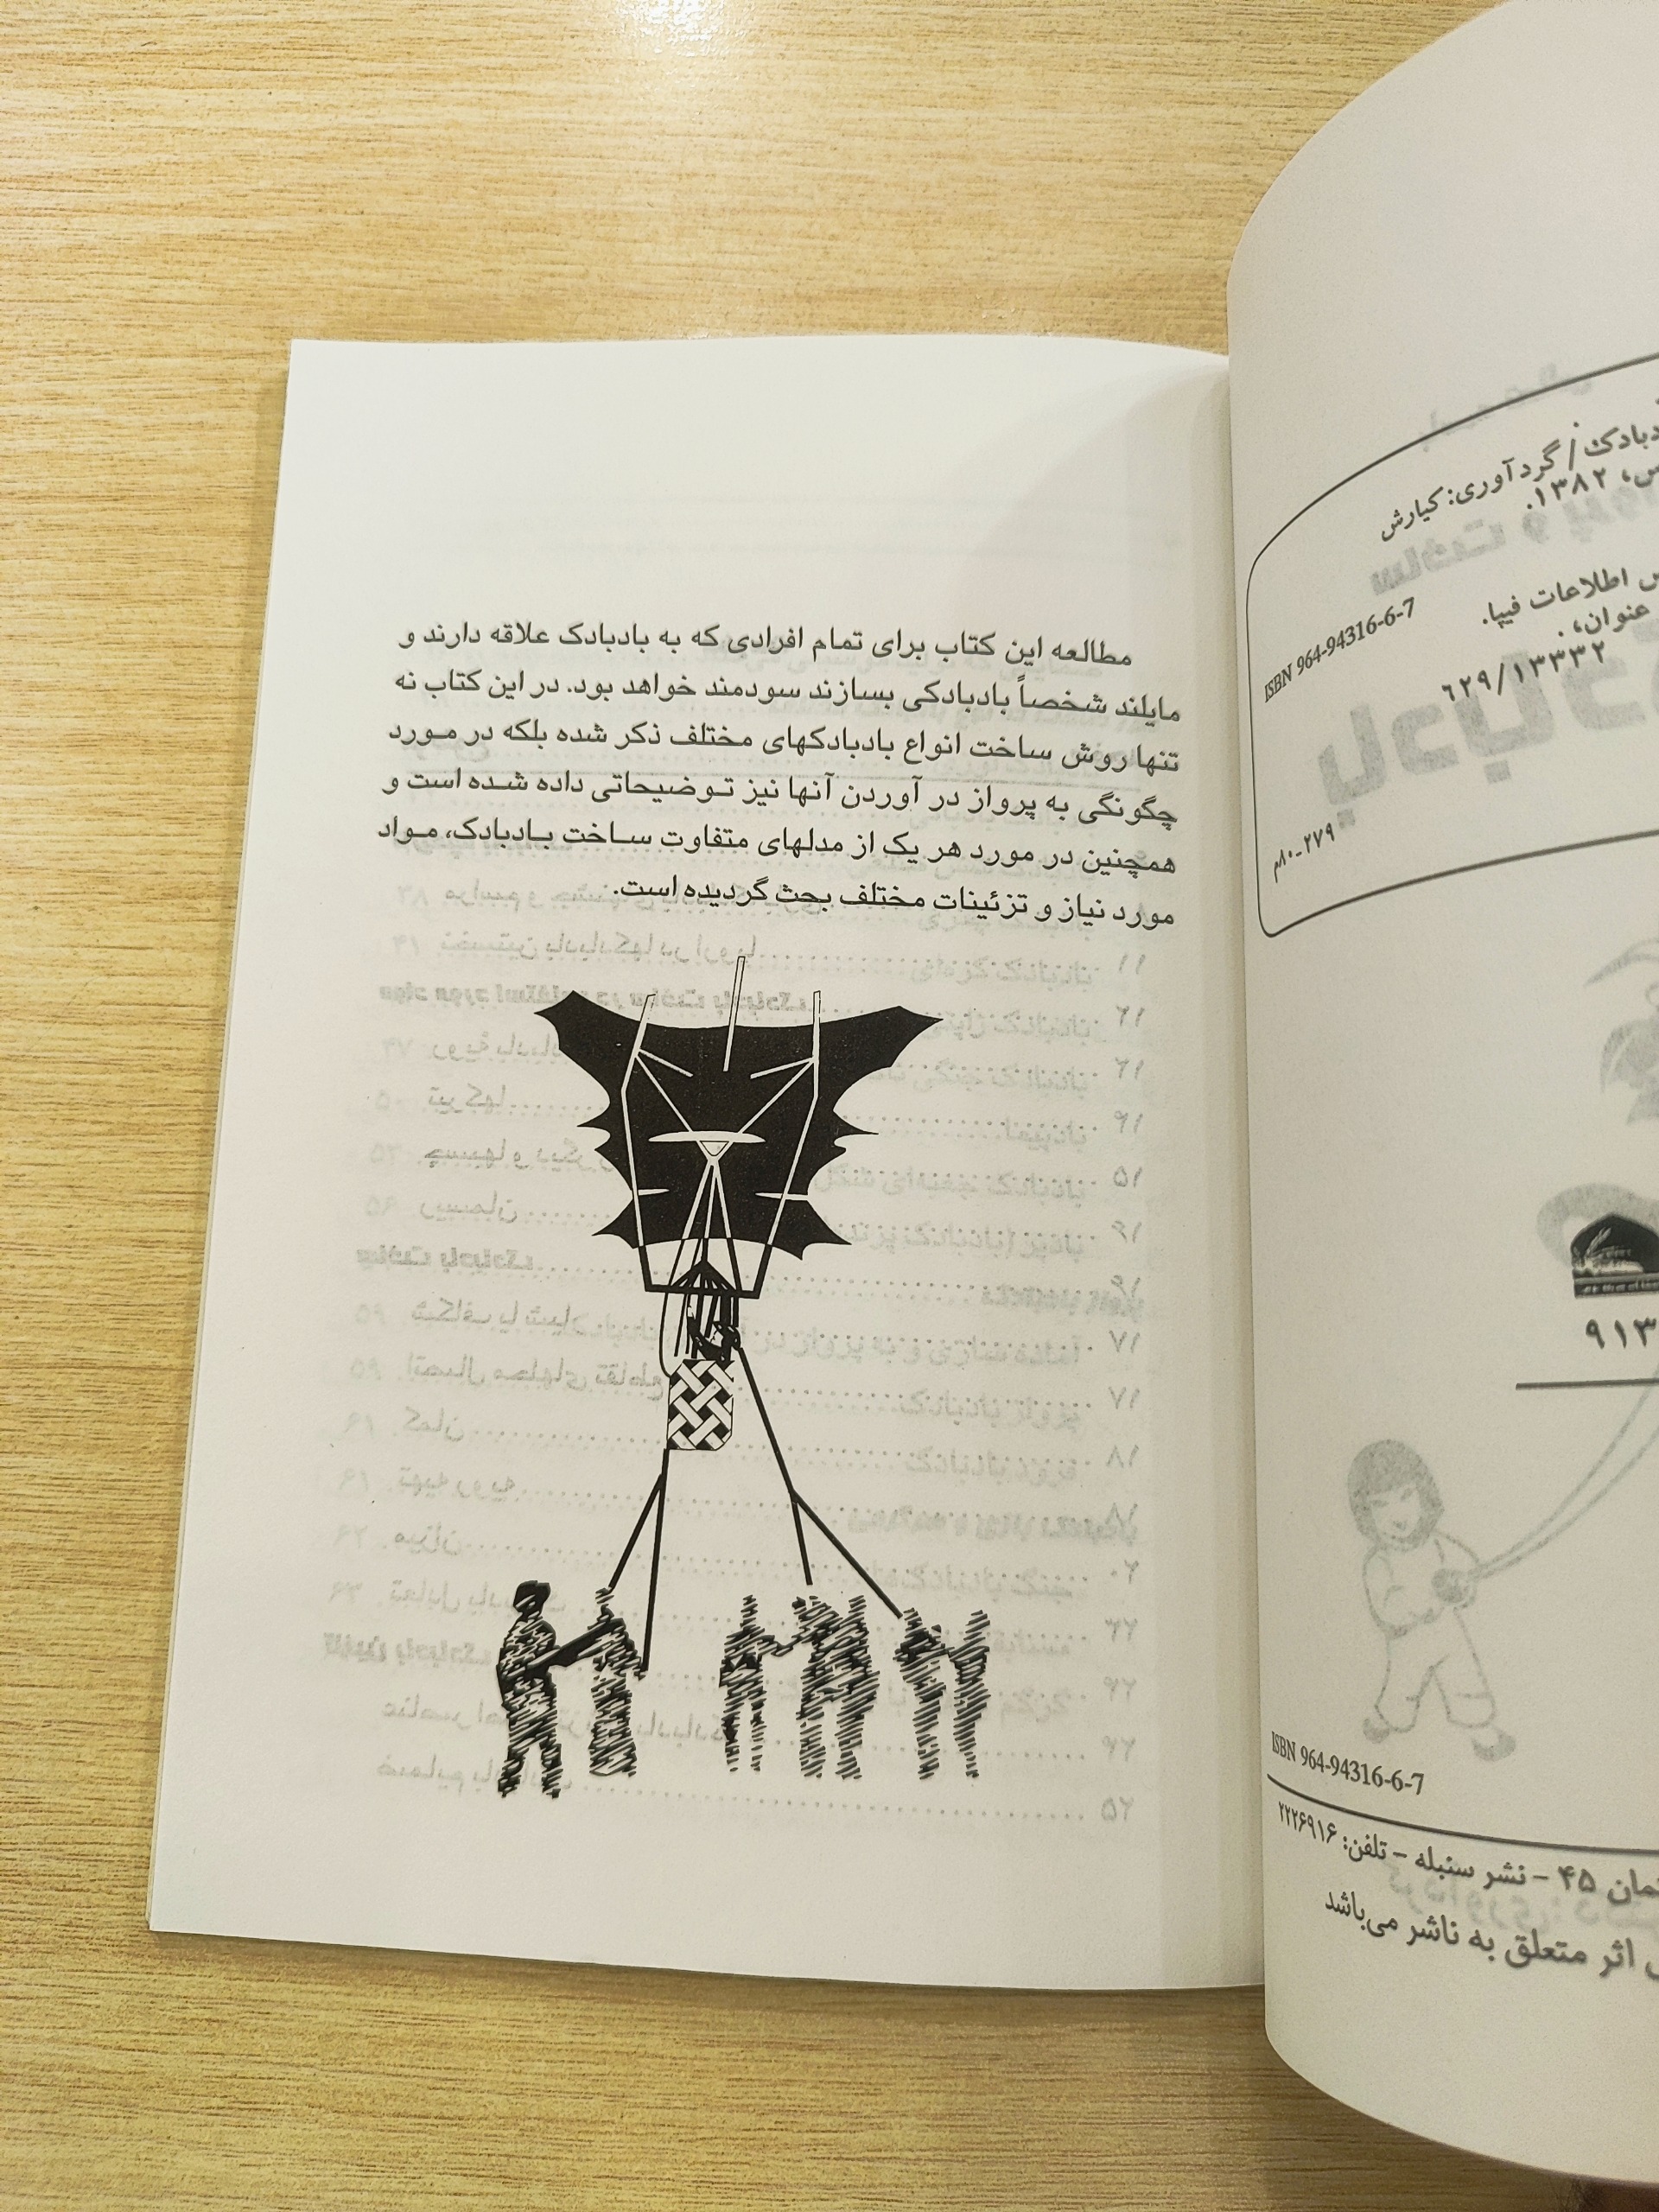 دبادک / گردآوری: کیارش
س، ۱۳۸۲.
ISBN 964-94316-6-7
اطلاعات فیپا.
عنوان، .
۶۲۹/۱۳۳۳۲
۲۷۹-۸۰م
۹۱۳
ISBN 964-94316-6-7
۴۵ – نشر سنبله – تلفن: ۲۲۲۶۹۱۶
اثر متعلق به ناشر می‌باشد
مطالعه این کتاب برای تمام افرادی که به بادبادک علاقه دارند و
مایلند شخصاً بادبادکی بسازند سودمند خواهد بود. در این کتاب نه
تنها روش ساخت انواع بادبادکهای مختلف ذکر شده بلکه در مورد
چگونگی به پرواز در آوردن آنها نیز توضیحاتی داده شده است و
همچنین در مورد هر یک از مدلهای متفاوت ساخت بادبادک، مواد
مورد نیاز و تزئینات مختلف بحث گردیده است.